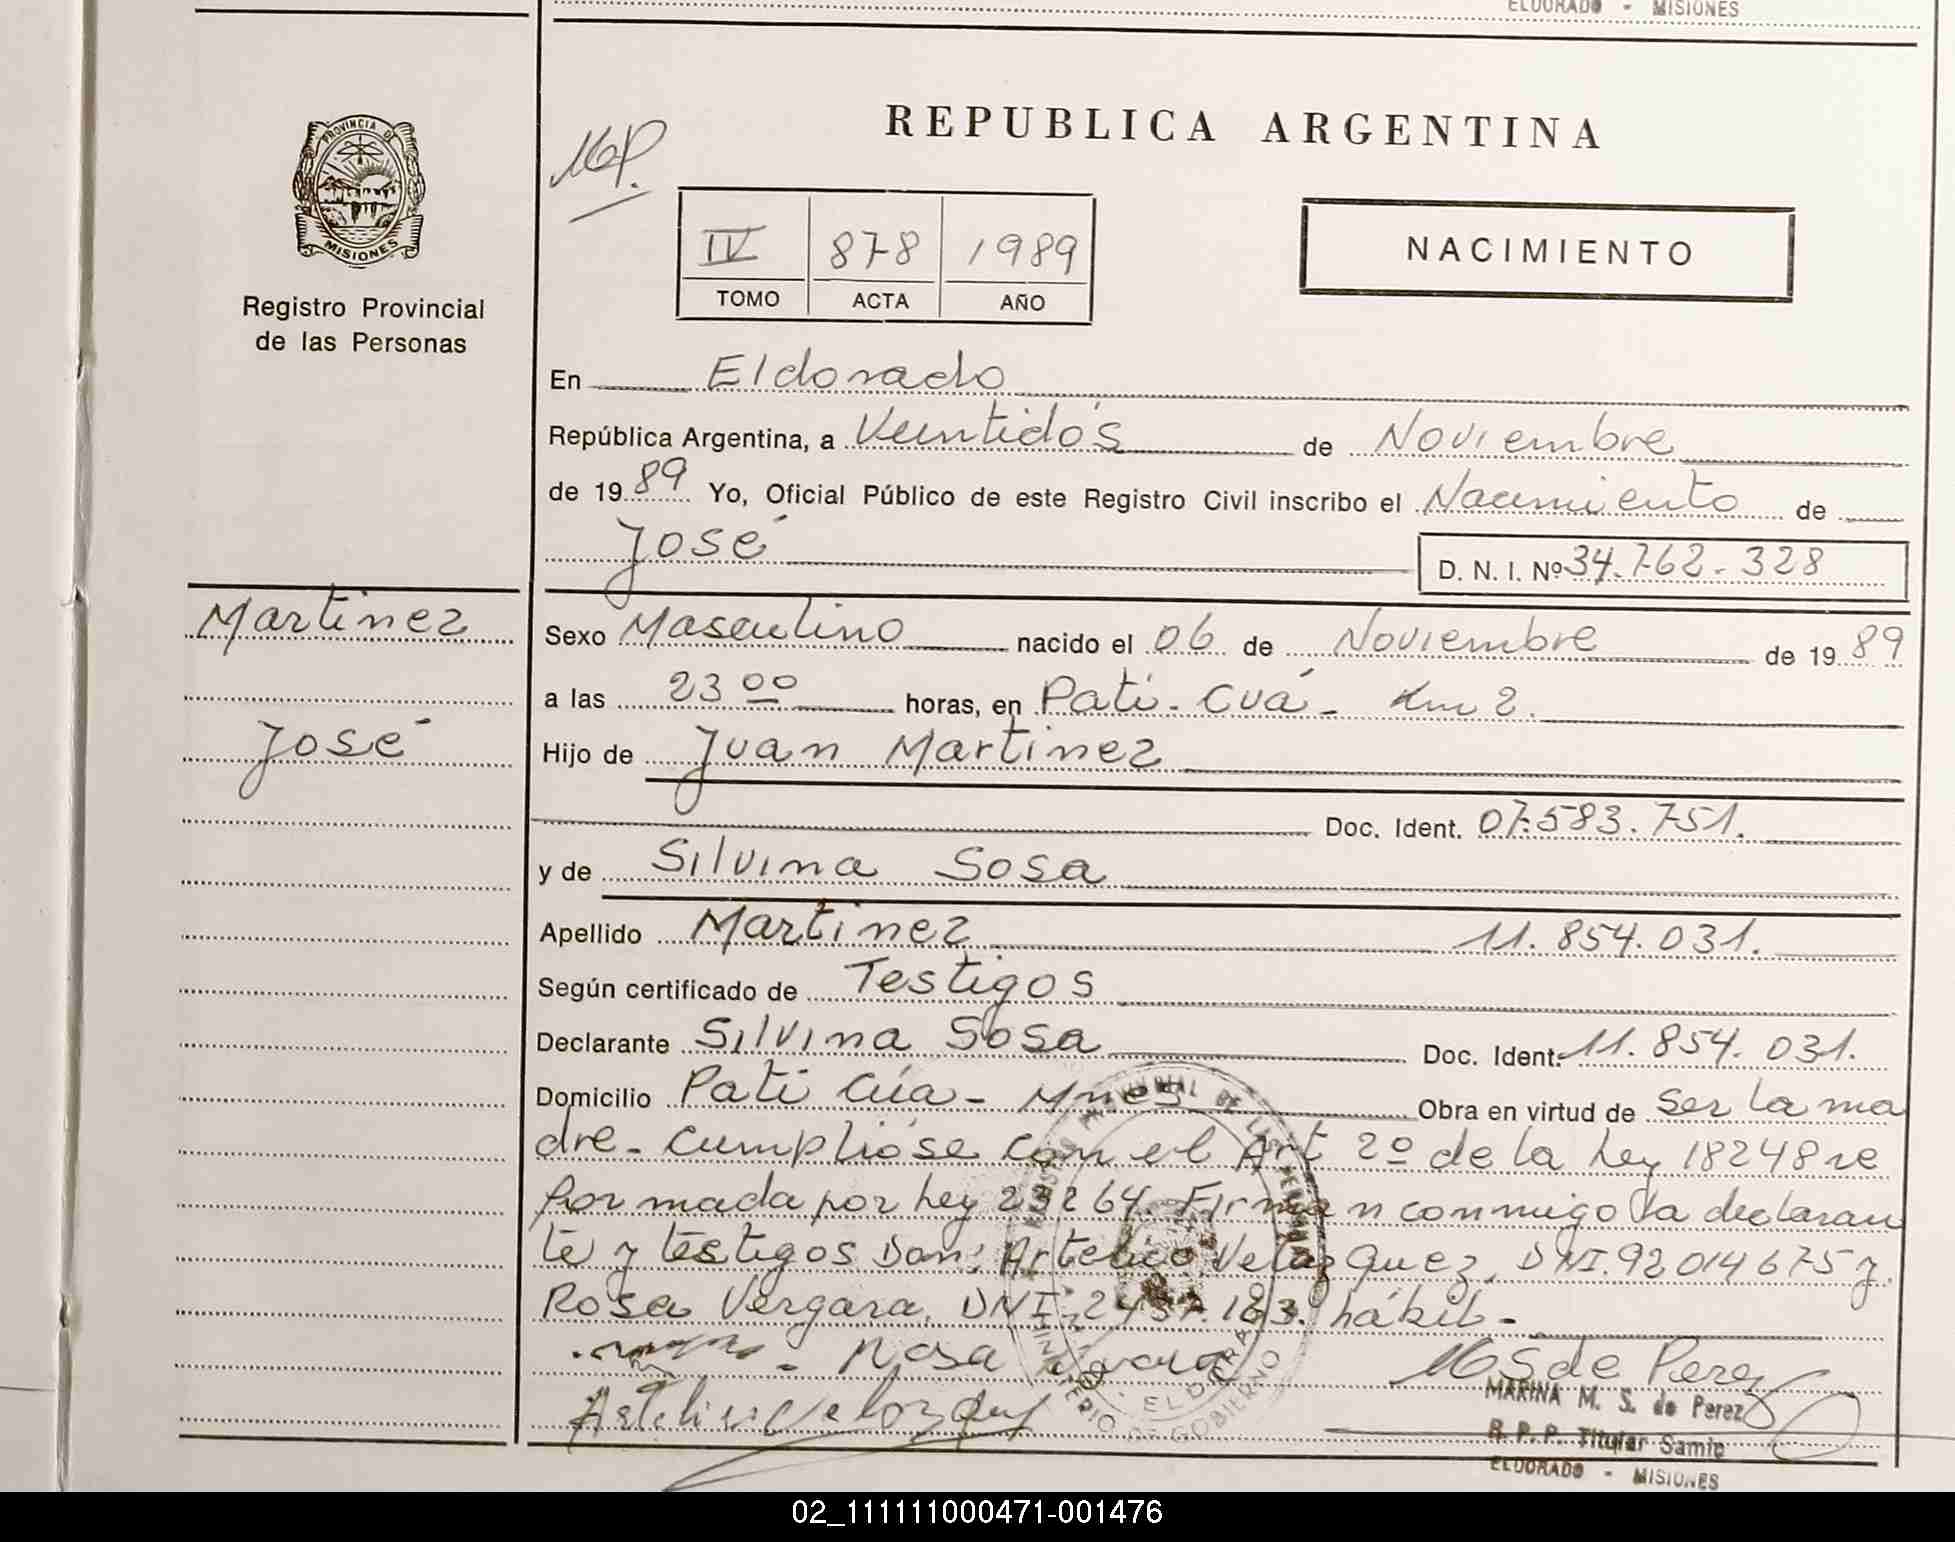 ELDORADO - MISIONES
PROVINCIA DE
MISIONES
Registro Provincial
de las Personas
REPUBLICA ARGENTINA
NACIMIENTO
IV 878 1989
TOMO ACTA AÑO
En Eldorado
República Argentina, a Veintidós de Noviembre
de 1989 Yo, Oficial Público de este Registro Civil inscribo el Nacimiento de
José D. N. I. Nº 34.762.328
Martinez
José
Sexo Masculino nacido el 06 de Noviembre de 1989
a las 23 00 horas, en Pati-Cuá- Km 2.
Hijo de Juan Martinez
Doc. Ident. 07.583.751.
y de Silvina Sosa
Apellido Martinez 11.854.031.
Según certificado de Testigos
Declarante Silvina Sosa Doc. Ident. 11.854.031.
Domicilio Pati Cúa - Mnes Obra en virtud de Ser la ma
dre. Cumplióse con el Art 2º de la Ley 18248 re
formada por Ley 23264. Firman conmigo la declaran
te y testigos Don: Artelico Velazquez, DNI. 92014675 y
Rosa Vergara, DNI: hábil-
Rosa
MSde Perez
MARINA M. S. de Perez
R. P. P. Titular Samic
ELDORADO - MISIONES
02_111111000471-001476